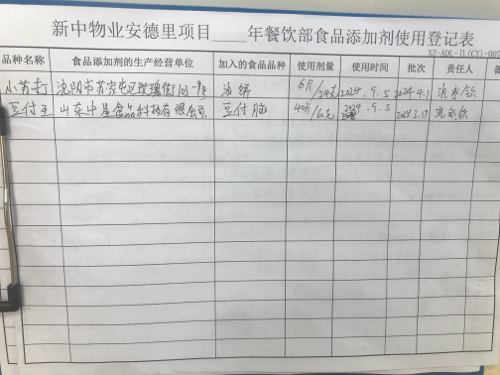 新中物业安德里项目____年餐饮部食品添加剂使用登记表
XZ-ADL-JL(CY)-007
品种名称 食品添加剂的生产经营单位 加入的食品品种 使用剂量 使用时间 批次 责任人 备
小苏打 沈阳市苏家屯区 油饼 2024.9.5 2024.4.1
豆付王 山东中星食品科技有限公司 豆付脑 2024.9.5 2024.3.17